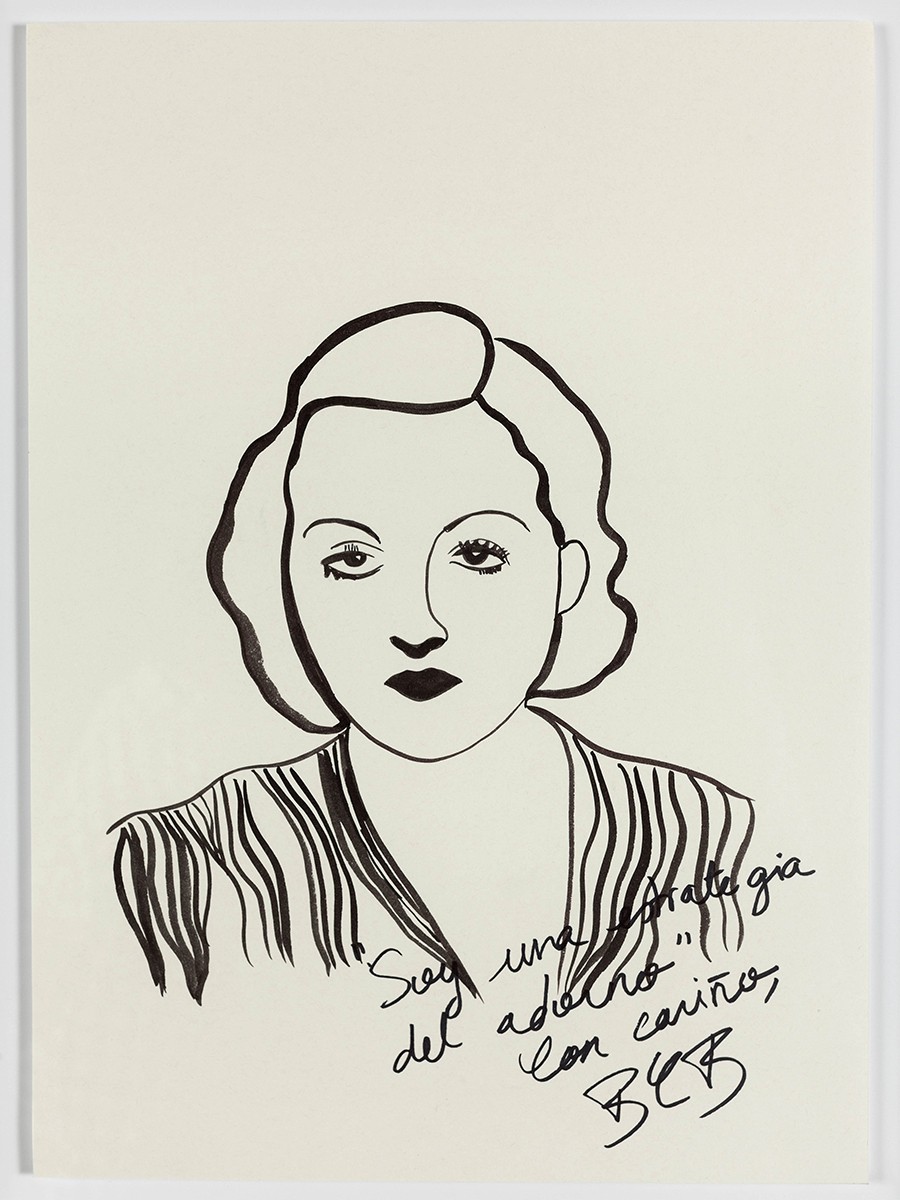 "Soy una estrategia
del adorno"
Con cariño,
BCB